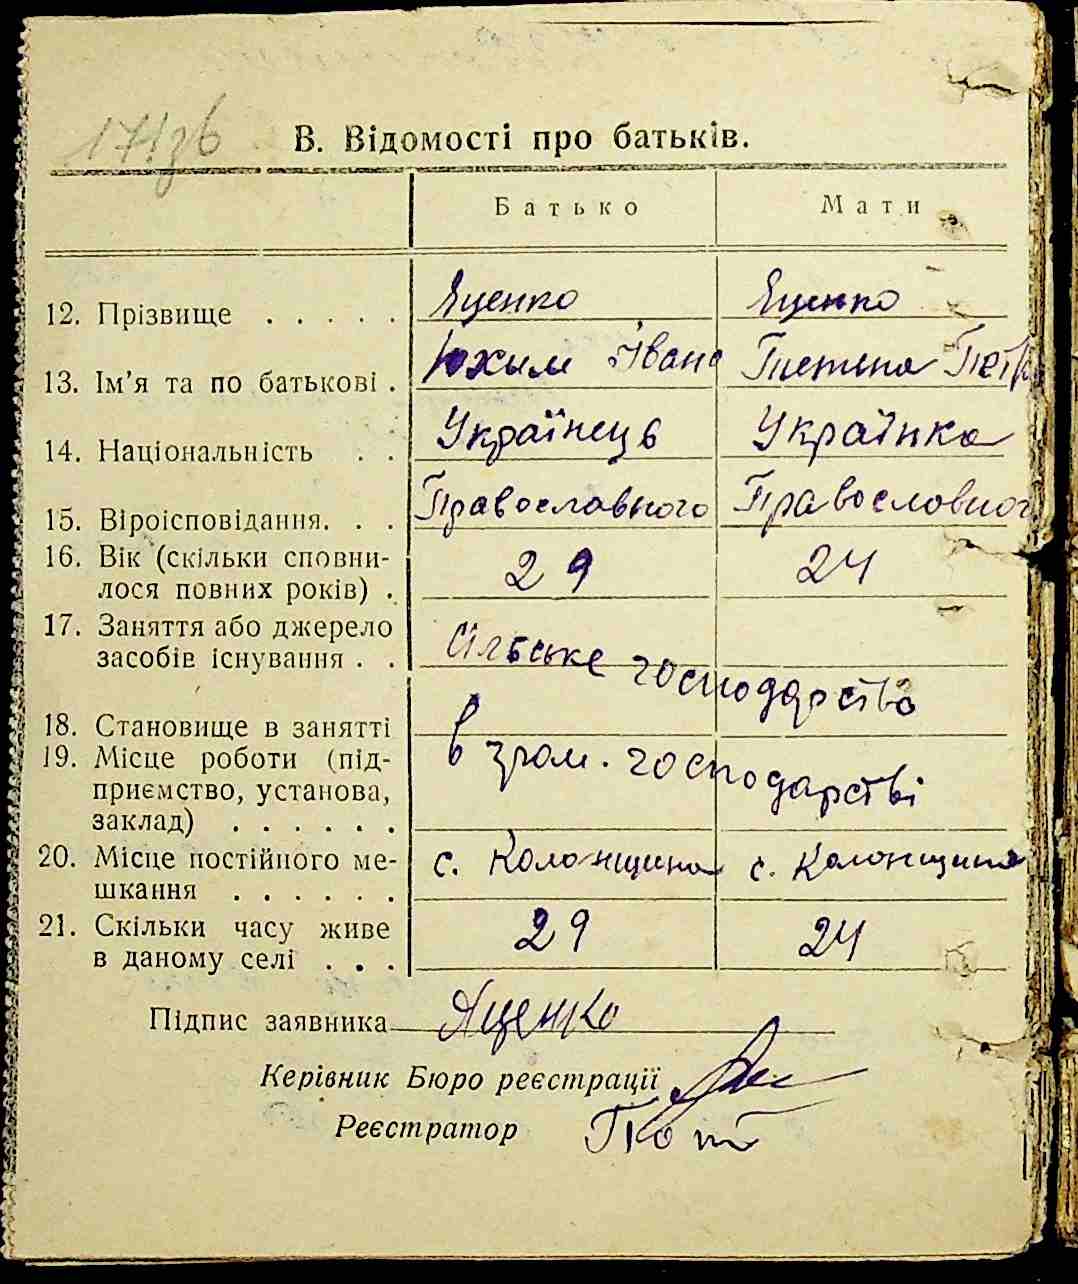 В. Відомості про батьків.
Батько Мати
12. Прізвище . . . . . Яценко Яценко
13. Ім’я та по батькові . Юхым Івано Тетяна Петр
14. Національність . . Українець Українка
15. Віроісповідання. . . Православного Православног
16. Вік (скільки сповни-
лося повних років) . 29 24
17. Заняття або джерело
засобів існування . . Сільське господарство
18. Становище в занятті
19. Місце роботи (під- в гром. господарстві
приємство, установа,
заклад) . . . . . .
20. Місце постійного ме- с. Колонщина с. Колонщина
шкання . . . . . .
21. Скільки часу живе 29 24
в даному селі . . .
Підпис заявника Яценко
Керівник Бюро реєстрації
Реєстратор